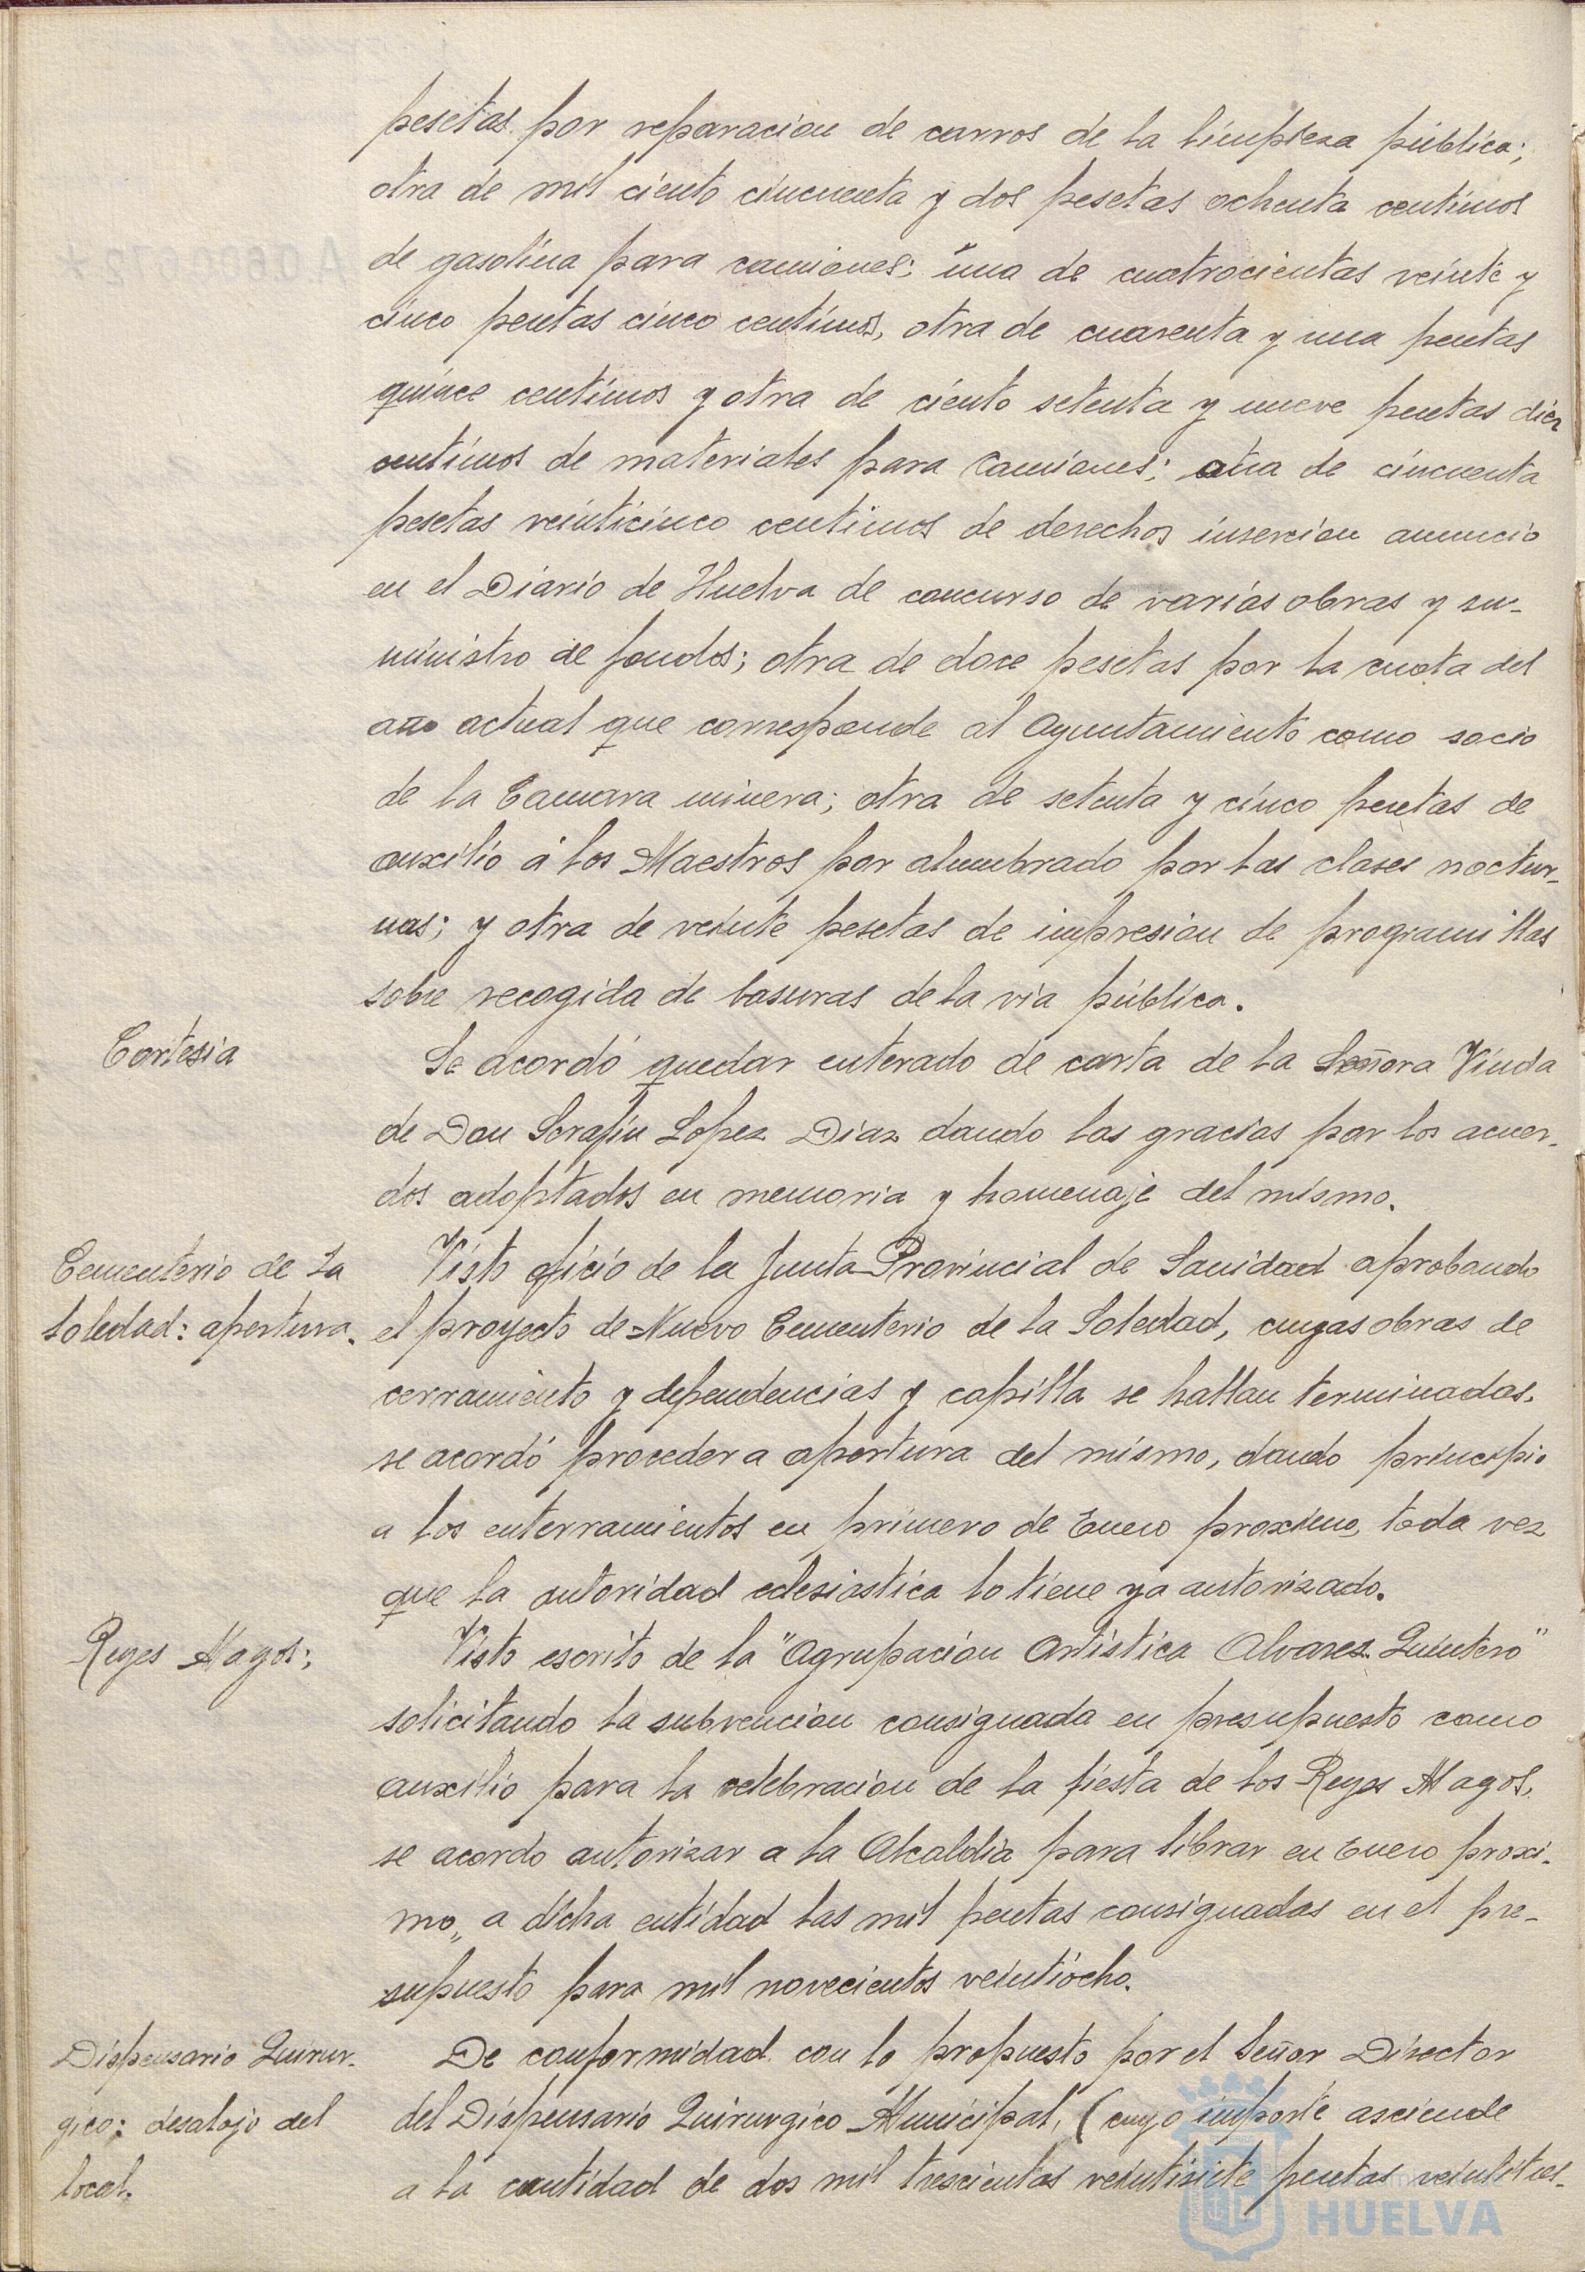 pesetas por reparacion de carros de la limpieza pública;
otra de mil ciento cincuenta y dos pesetas ochenta centimos
de gasolina para camiones; una de cuatrocientas veinte y
cinco pesetas cinco centimos, otra de cuarenta y una pesetas
quince centimos y otra de ciento setenta y nueve pesetas diez
centimos de materiales para camiones; otra de cincuenta
pesetas veinticinco centimos de derechos insercion anuncio
en el Diario de Huelva de concurso de varias obras y su-
ministro de fondos; otra de doce pesetas por la cuota del
año actual que corresponde al Ayuntamiento como socio
de la Camara minera; otra de setenta y cinco pesetas de
auxilio á los Maestros por alumbrado por las clases noctur-
nas; y otra de veinte pesetas de impresion de programillas
sobre recogida de basuras de la via pública.
Cortesia
Se acordó quedar enterado de carta de la Señora Viuda
de Don Serafin Lopez Diaz dando las gracias por los acuer-
dos adoptados en memoria y homenaje del mismo.
Cementerio de la
Soledad: apertura.
Visto oficio de la Junta Provincial de Sanidad aprobando
el proyecto de Nuevo Cementerio de la Soledad, cuyas obras de
cerramiento y dependencias y capilla se hallan terminadas,
se acordó proceder a apertura del mismo, dando principio
a los enterramientos en primero de Enero proximo, toda vez
que la autoridad eclesiastica lo tiene ya autorizado.
Reyes Magos:
Visto escrito de la "Agrupacion Artistica Alvarez Quintero"
solicitando la subvencion consignada en presupuesto como
auxilio para la celebracion de la fiesta de los Reyes Magos,
se acordo autorizar a la Alcaldia para librar en Enero proxi-
mo, a dicha entidad las mil pesetas consignadas en el pre-
supuesto para mil novecientos veintiocho.
Dispensario Quirur-
gico: desalojo del
local.
De conformidad con lo propuesto por el Señor Director
del Dispensario Quirurgico Municipal, (cuyo importe asciende
a la cantidad de dos mil trescientas veintisiete pesetas veintitres
HUELVA